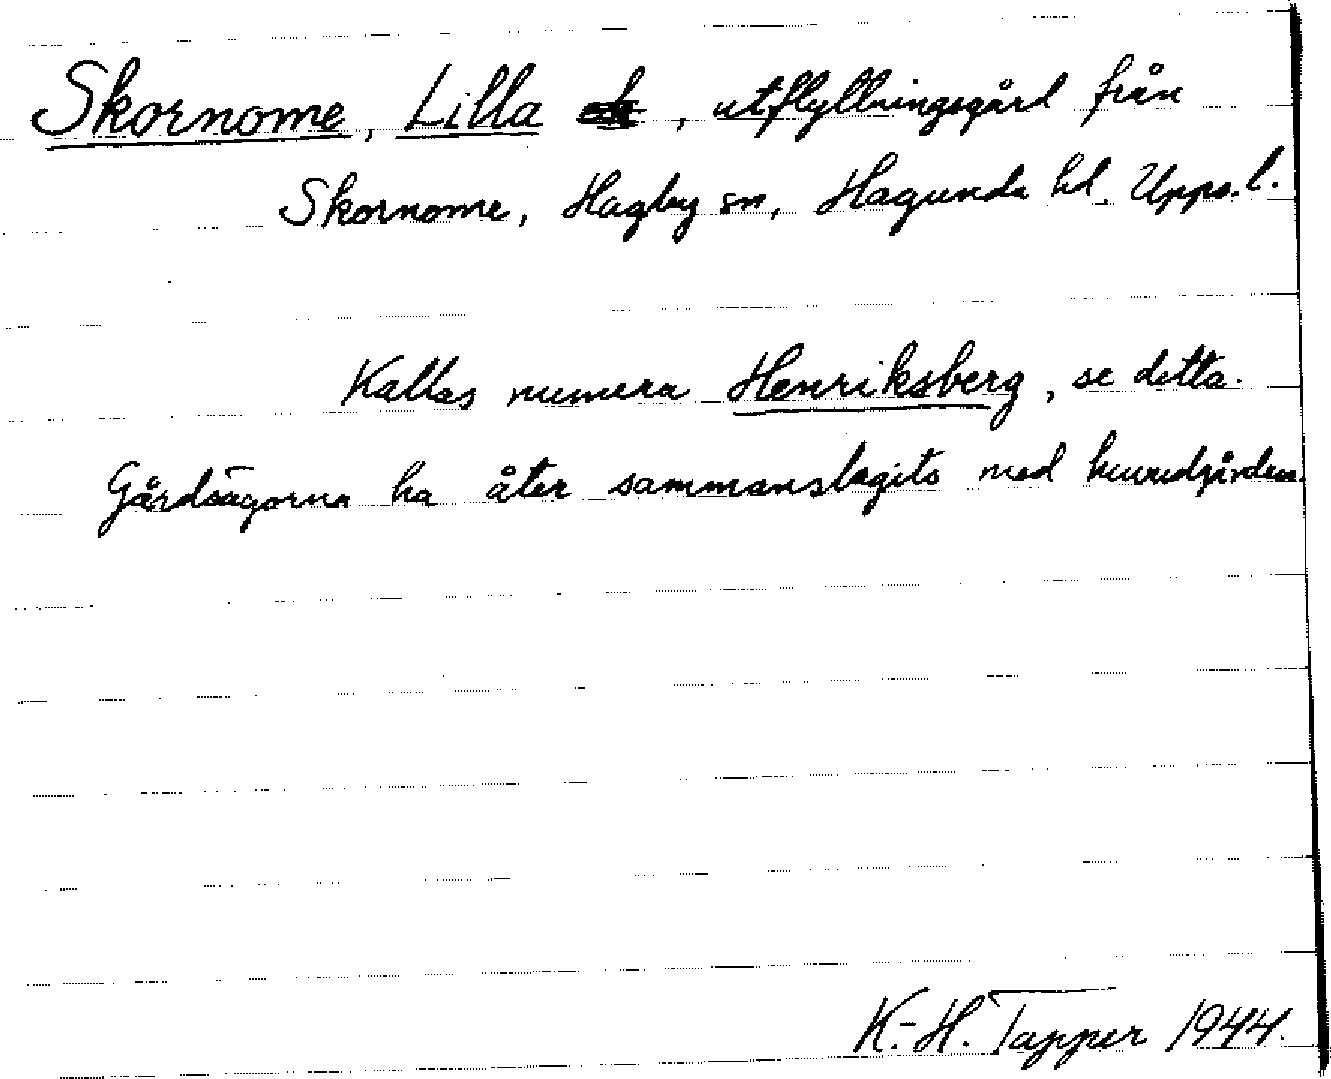 Skornome, Lilla , utflyttningsgård från
Skornome, Hagby sn, Hagunda hd, Upps. l.
Kallas numera Henriksberg, se detta.
Gårdsägorna ha åter sammanslagits med huvudgården.
K.-H. Tapper 1944.